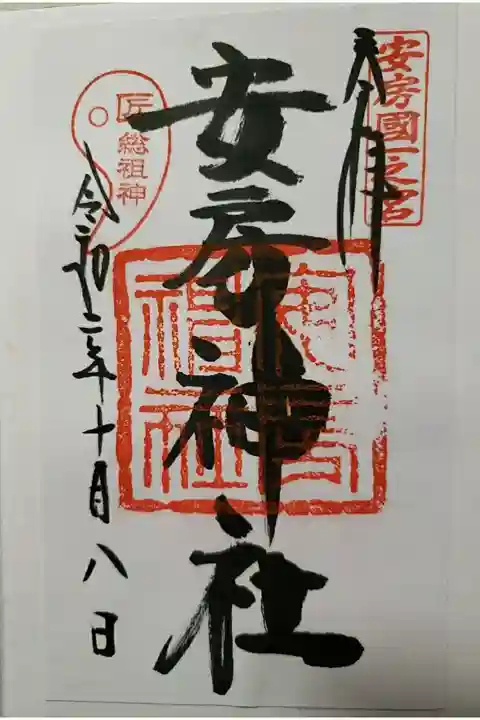 安房國一之宮
奉拝
安房神社
安房神社
匠総祖神
令和二年十月八日